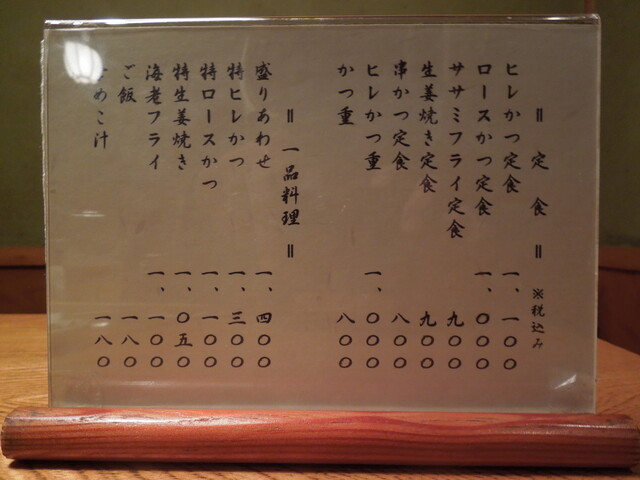 ＝ 定 食 ＝ ※税込み
ヒレかつ定食 一、一〇〇
ロースかつ定食 一、〇〇〇
ササミフライ定食 九〇〇
生姜焼き定食 九〇〇
串かつ定食 八〇〇
ヒレかつ重 一、〇〇〇
かつ重 八〇〇
＝ 一品料理 ＝
盛りあわせ 一、四〇〇
特ヒレかつ 一、三〇〇
特ロースかつ 一、一〇〇
特生姜焼き 一、〇五〇
海老フライ 一、一〇〇
ご飯 一八〇
なめこ汁 一八〇